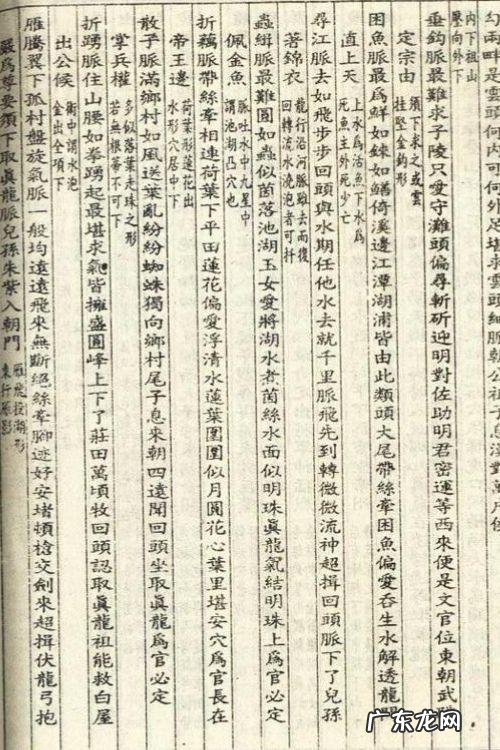 勾兩畔是雲頭何內可何外足堪求雲頭細脈朝公祖子息漢對萬
內下祖山
壓向外下
垂鈎脈最難求子陵只愛守灘頭偏尋斬斫迎明對佐助明君密運等西來便是文官位東朝武
定宗由
須下求之或雲
挂堅金鈎形
困魚脈最為鮮如錬如鱔倚溪邊江潭湖浦皆由此類頭大尾帶絲牽困魚偏愛吞生水解透龍
直上天
上水為活魚下水為
死魚主外死少亡
尋江脈去如飛步步回頭與水期任他水去就千里脈飛先到轉微微流神超揖回頭脈下了兒孫
著錦衣
龍行沿河脈雖去而復
回轉流水澆泡者可扦
蟲緝脈最難圓如蟲似茵落池湖玉女愛將湖水煮茵絲水面似明珠眞龍氣結明珠上爲官必定
佩金魚
脈吐水中九星中
謂池湖凸穴也
折藕脈帶絲牽相連荷葉下平田蓮花偏愛浮清水蓮葉團團似月圓花心葉里堪安穴爲官長在
帝王邊
荷葉形蓮花出
水形穴居中下
散子脈滿鄉村如風送葉亂紛紛蜘蛛獨向鄉村尾子息來朝四遠聞回頭坐取眞龍爲官必定
掌兵權
多似落葉走珠之形
若無根蒂不可下
折踴脈住山腰如拳踴起最堪求氣皆擁盛圓峰上下了莊田萬頃牧回頭認取眞龍祖能救白屋
出公候
衝中謂水泡
金出全項下
雁騰翼下孤村盤旋氣脈一般均遠遠飛來無斷絕絲牽腳迹好安堵頓槍交劍來超揖伏龍弓抱
最爲尊要須下取眞龍脈兒孫朱紫入朝門
雁飛投湖形
广东龙网